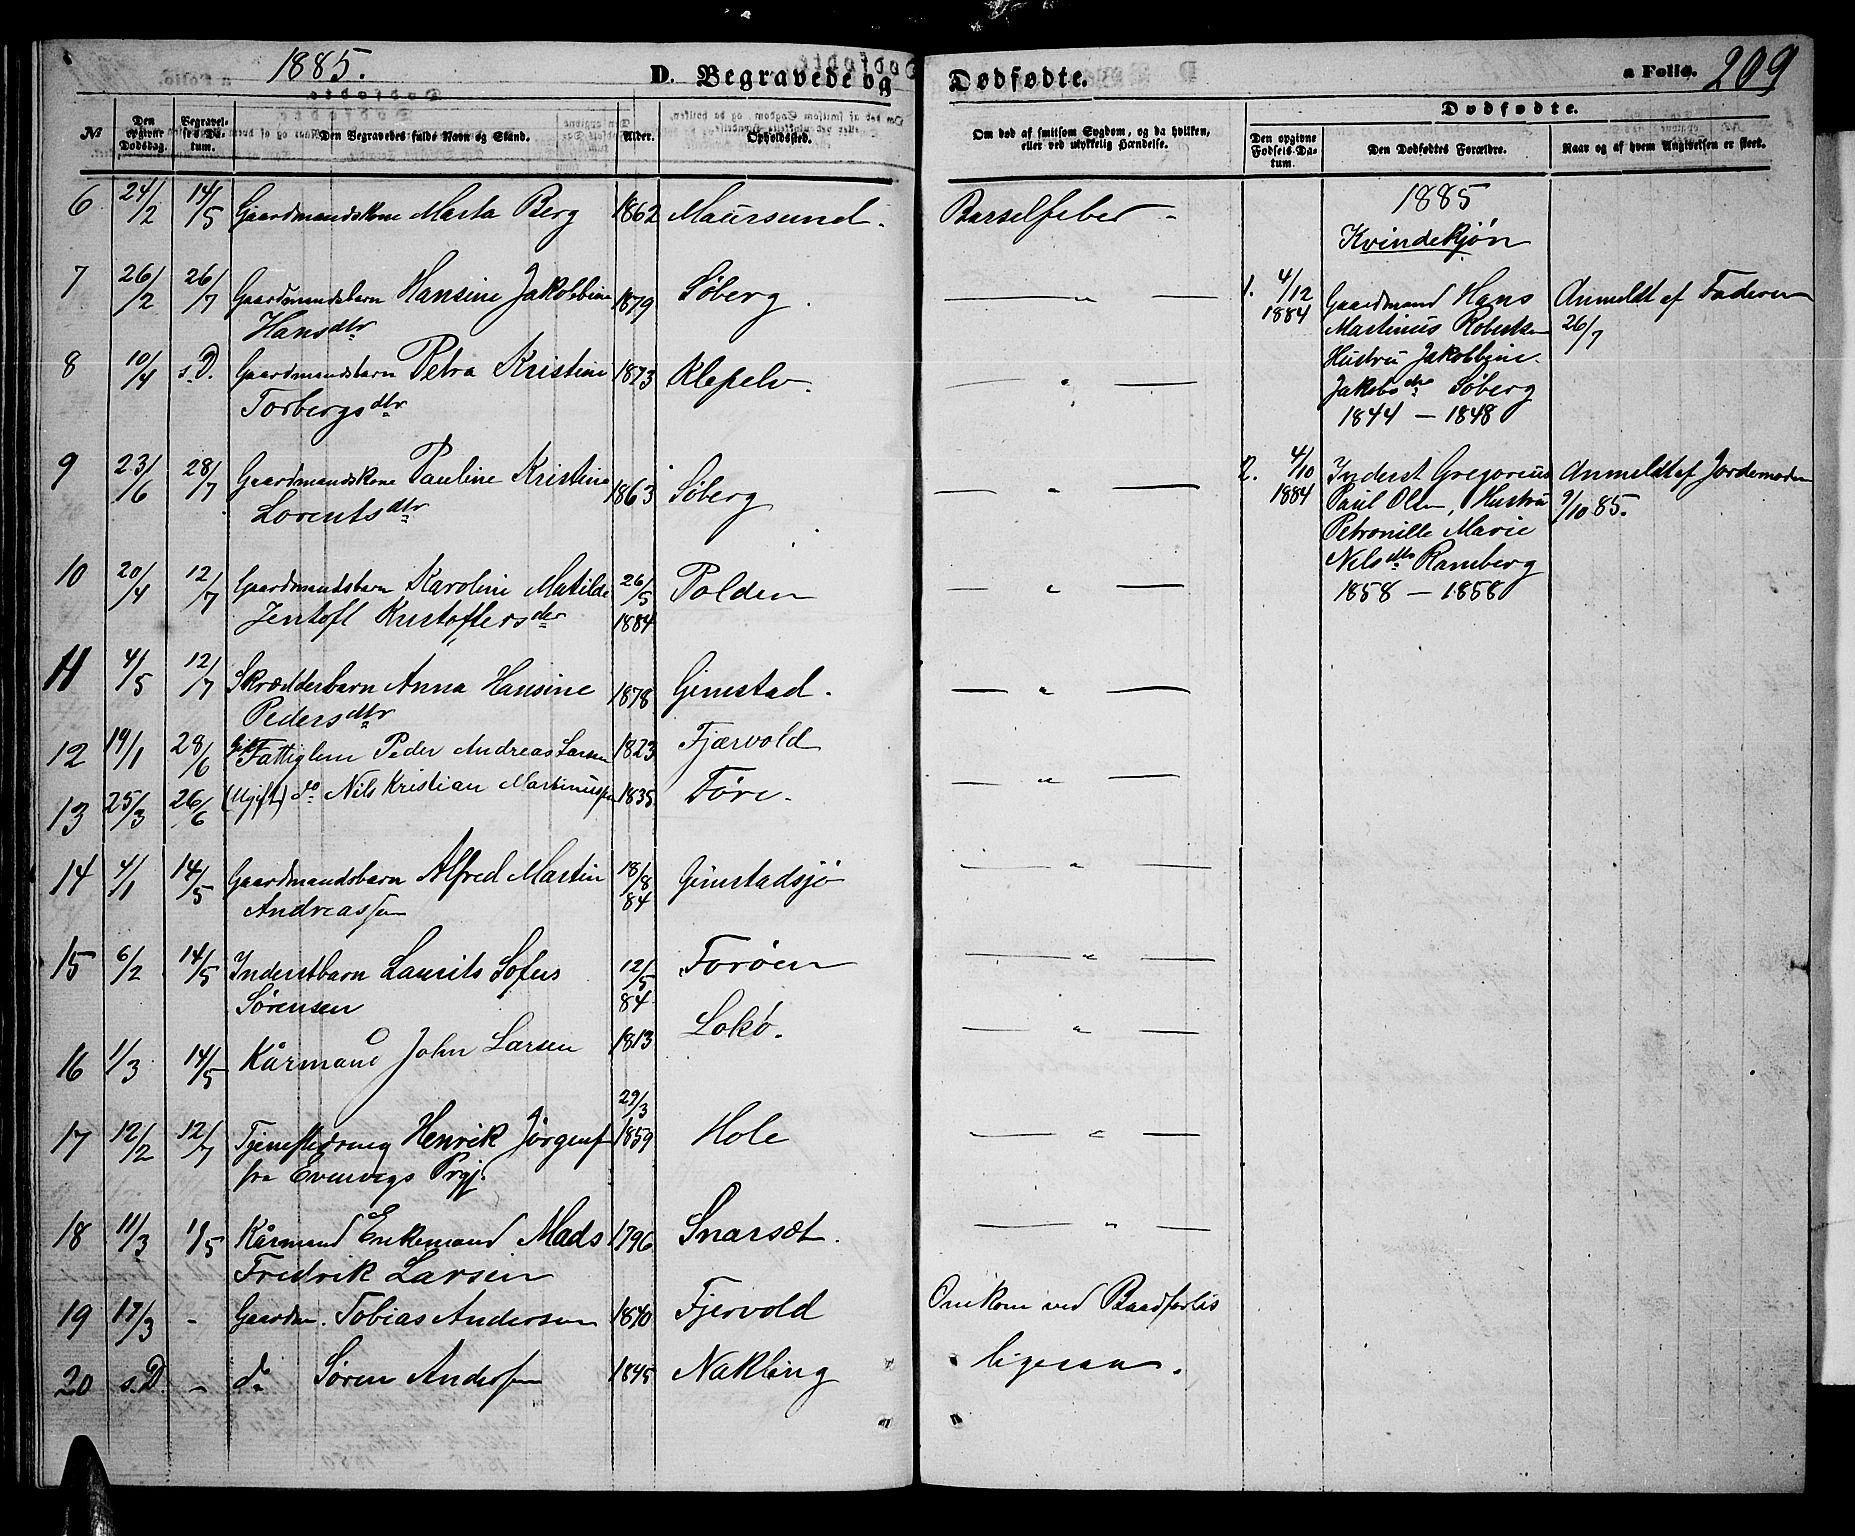 1885.
D. Begravede og Dødfødte.
a Folio. 209
№
Den opgivne Dødsdag.
Begravelses-Datum.
Den Begravedes fulde Navn og Stand.
Alder.
Opholdssted.
Om død af smitsom Sygdom, og da hvilken, eller ved ulykkelig Hændelse.
Dødfødte.
Den opgivne Fødsels-Datum.
Den Dødfødtes Forældre.
Naar og af hvem Angivelsen er skeet.
6 24/2 14/5 Gaardmandskone Marta Berg 1862 Maursund. Barselfeber -
7 26/2 26/7 Gaardmandsbarn Hansine Jakobbine 1879 Søberg. — " —
Hansdtr
8 10/4 s.D. Gaardmandsbarn Petra Kristine 1873 Klepelv. — " —
Torbergsdtr
9 23/6 28/7 Gaardmandskone Pauline Kristina 1863 Søberg — " —
Lorentsdtr
10 20/4 12/7 Gaardmandsbarn Karoline Matilde 26/5 Polden — " —
Jentoft Kristoffersdtr 1884
11 4/5 12/7 Skrædderbarn Anna Hansine 1878 Gimstad. — " —
Pedersdtr
12 19/1 28/6 Fattiglem Peder Andreas Larsen 1823 Fjærvold
13 25/3 26/6 (Ugift) do Nils Kristian Martinussen 1835 Føre. — " —
14 4/1 14/5 Gaardmandsbarn Alfred Martin 18/8 84 Gimstadsjø — " —
Andreassen
15 6/2 14/5 Inderstbarn Laurits Sofus 12/5 84 Forøen — " —
Sørensen
16 1/3 14/5 Kårmand John Larsen 1813 Lokø. — " —
17 12/2 12/7 Tjenestedreng Henrik Jørgens 29/3 1859 Hole — " —
fra Evenvigs Prgj.
18 11/3 11/5 Kårmand Enkemand Mads 1796 Snarsæt. — " —
Fredrik Larsen
19 17/3 - Gaardm. Tobias Andersen 1840 Fjervold Omkom ved Baadforlis
20 s.D. - do Søren Anderssen 1845 Nakling ligesaa.
1885
Kvindekjøn
1. 4/12 1884 Gaardmand Hans Anmeldt af Faderen
Martinus Roberts 26/7
Hustru Jakobbine
Jakobsdtr Søberg
1844 — 1848
2. 4/10 1884 Inderst Gregorius Anmeldt af Jordemoderen
Paul Olsen, Hustru 9/10 85.
Petronille Marie
Nilsdtr Ramberg
1858 — 1858